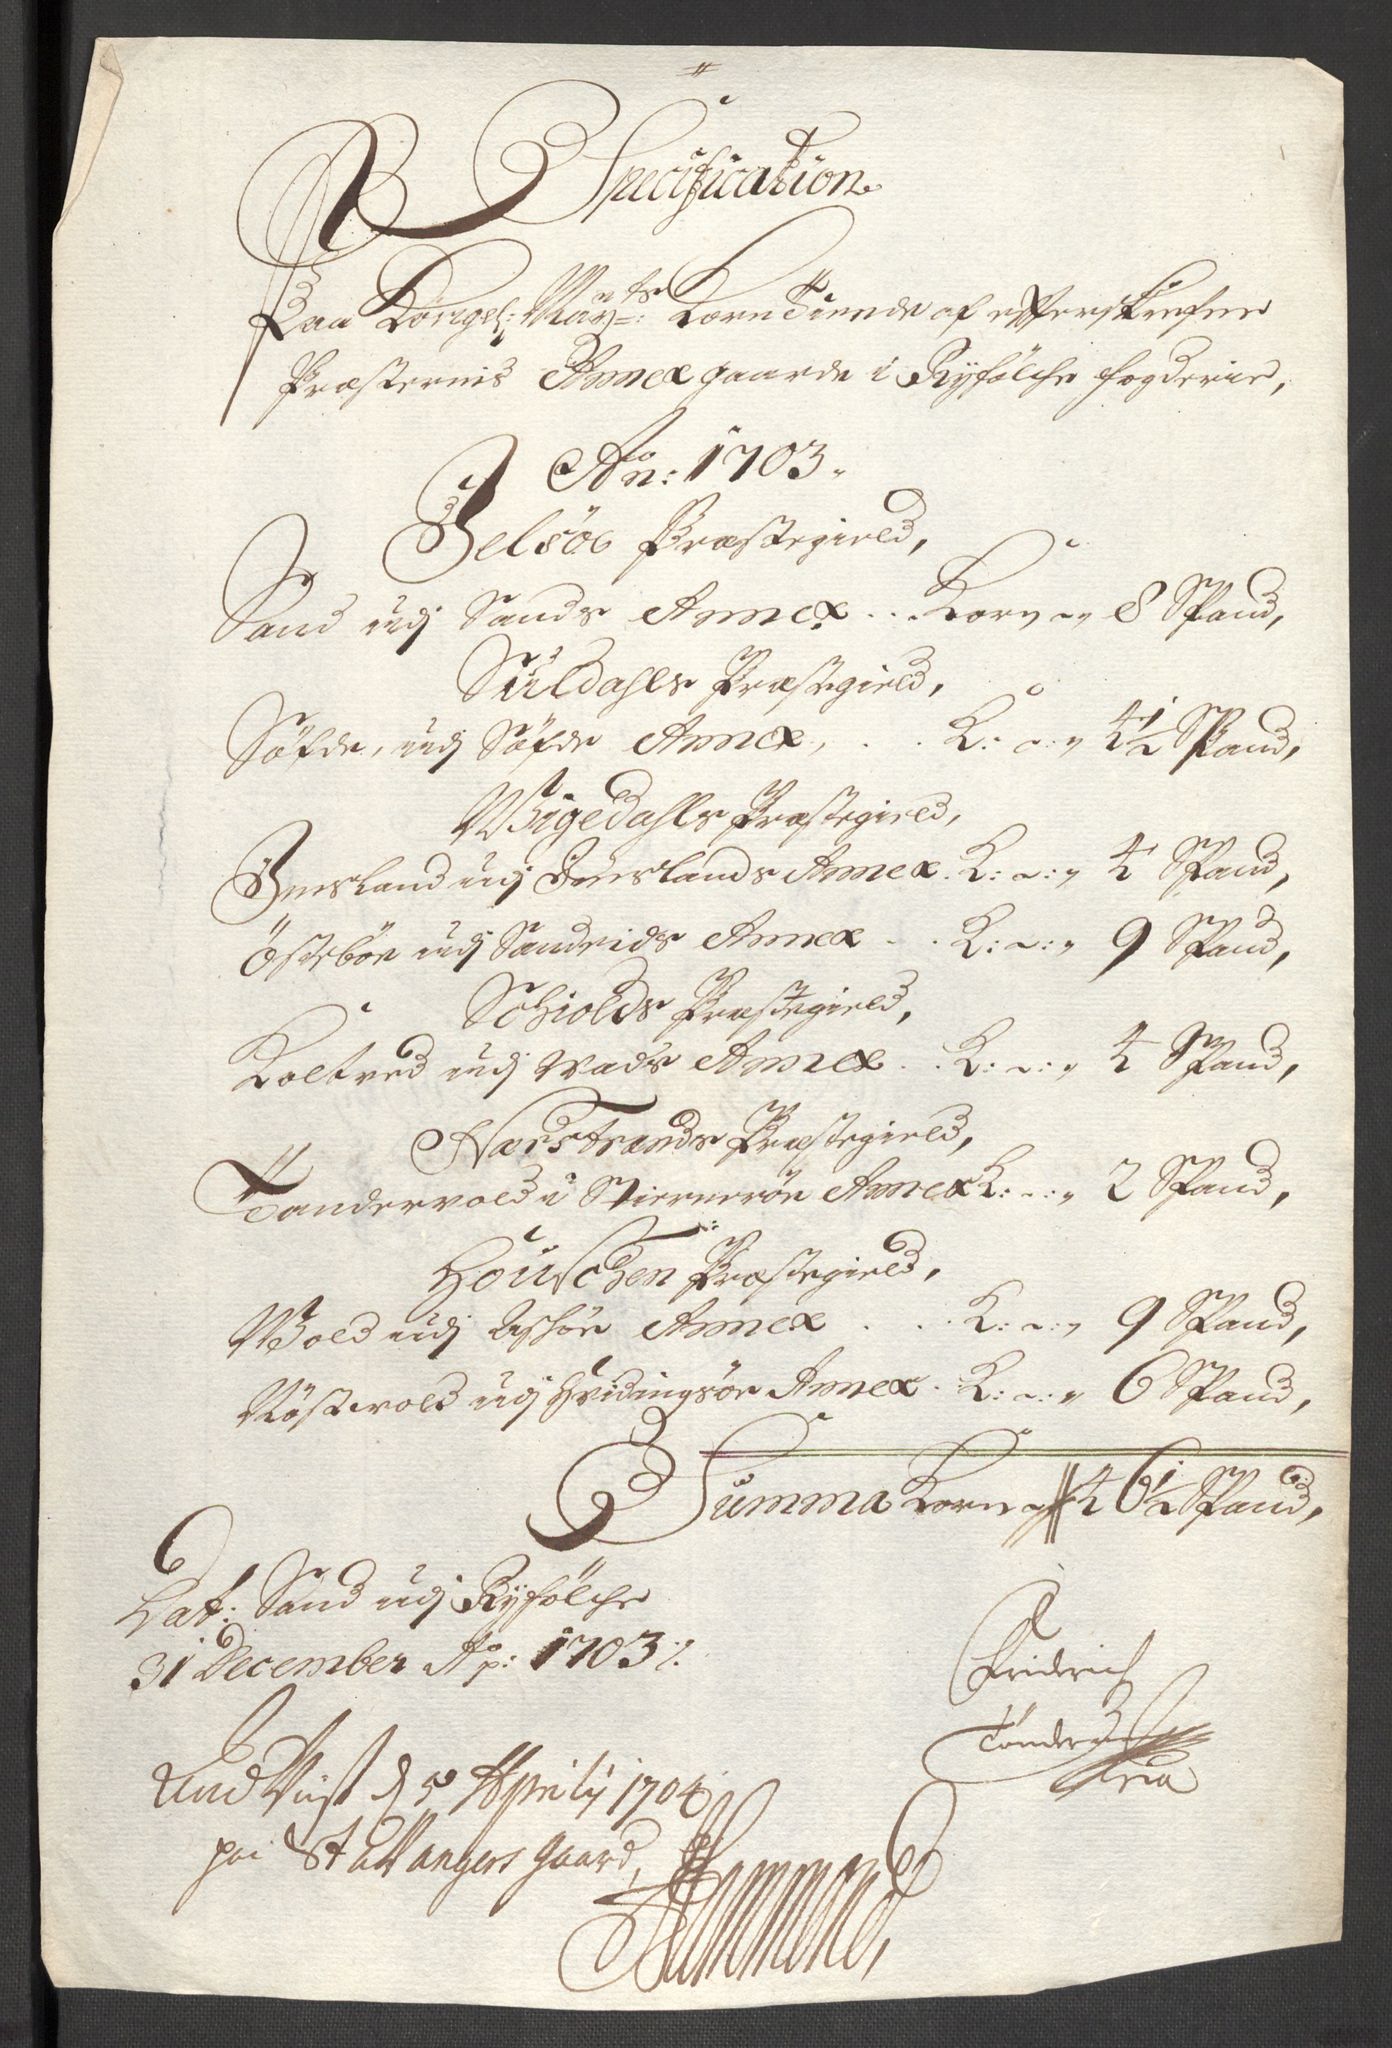 Specification
Paa Kongel: Mayts: Korn Tiende af effterskrefne
Præsternis Annex gaarde i Ryfölche fogderie,
Ao: 1703.
Jelsöe Præstegield,
Sand udj Sands Annex . . . Korn ~ 8 Spand,
Suldahls Præstegield,
Söfde, udj Söfde Annex, . . K: ~ : 4½ Spand,
Wigedahls Præstegield,
Imsland udj Imslands Annex. K: ~ : 4 Spand,
Östeböe udj Sandeids Annex . . K: ~ : 9 Spand,
Schiolds Præstegield,
Koltved udj Wads Annex . . K: ~ : 4 Spand,
Narstrands Præstegield,
Tandervold i Stierneröe Annex K: ~ : 2 Spand,
Houschen Præstegield,
Wold udj Ashöe Annex . . . K: ~ : 9 Spand,
Nöstvold udj Hvidingsöe Annex . K: ~ : 6 Spand,
Summa Korn ~ 46½ Spand,
Dat: Sand udj Ryfölche
31 December Ao: 1703 ∕.
Friderich
Tönder
Leverit d 5 Aprily 1704
paa Stavangers gaard,
Hammond,